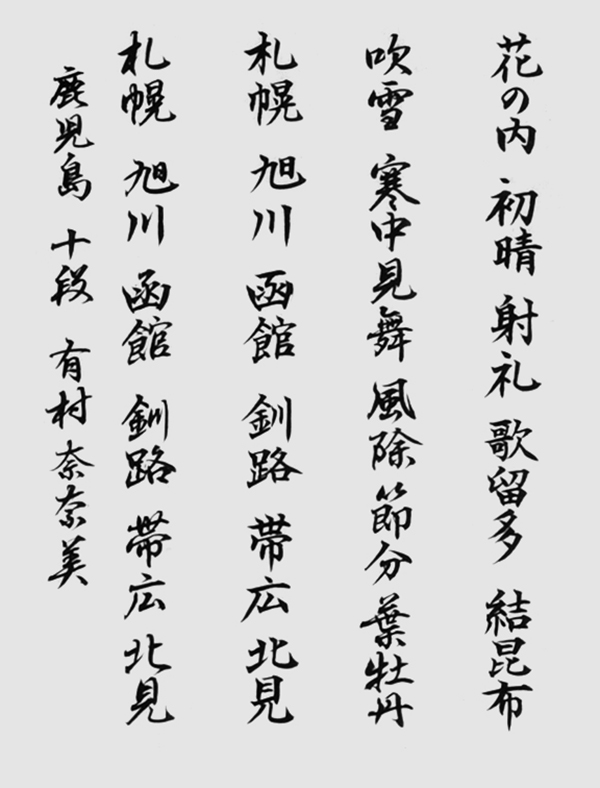 花の内 初晴 射礼 歌留多 結昆布
吹雪 寒中見舞 風除 節分 葉牡丹
札幌 旭川 函館 釧路 帯広 北見
札幌 旭川 函館 釧路 帯広 北見
鹿児島 十段 有村奈奈美